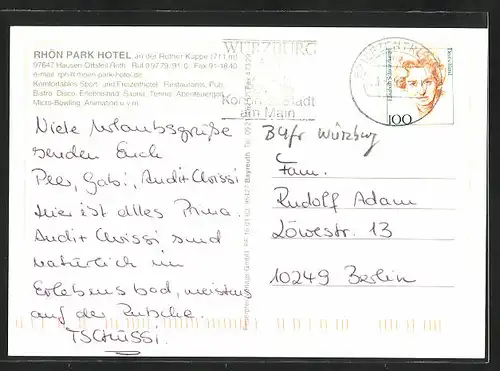 RHÖN PARK HOTEL an der Rother Kuppe (711 m)
97647 Hausen Ortsteil Roth Ruf 09779/91-0 Fax 91-1840
e-mail rph@rhoen-park-hotel.de
Komfortables Sport- und Freizeithotel Restaurants, Pub,
Bistro, Disco, Erlebnisbad, Sauna, Tennis, Abenteuergolf,
Micro-Bowling, Animation u.v.m.
WÜRZBURG
Kongreßstadt
am Main
BRIEFZENTRUM
Deutschland
100
Bzfr Würzburg
Viele Urlaubsgrüße
senden Euch
Peer, Gabi, Audit Chrissi
Hier ist alles Prima.
Audit Chrissi sind
natürlich im
Erlebensbad, meistens
auf der Rutsche.
TSCHÜSSI.
Fam.
Rudolf Adam
Löwestr. 13
10249 Berlin